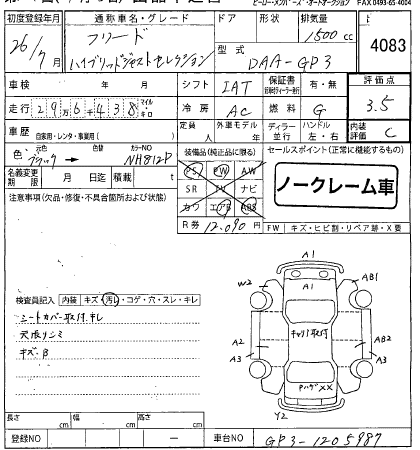 ピーローメンバーズ・オートオークション FAX 0493-65-4004
初度登録年月 通称車名・グレード ドア 形状 排気量
26/7月 フリード 1500cc
ハイブリッドジャストセレクション 型式 DAA-GP3 4083
車検 年 月 シフト IAT 保証書 有・無 評価点
走行 296438 マイル キロ 冷房 AC 燃料 G 3.5
車歴 自家用・レンタ・事業用( ) 定員 人 外車モデル 年 ディラー 並行 ハンドル 左・右 内装評価 C
色 元色 ブラック → 色替 カラーNO NH812P
装備品(純正品に限る) セールスポイント(正常に機能するもの)
名義変更期限 月 日迄 積載 t
PS PW AW
SR TV ナビ
カワ エアB ABS
ノークレーム車
注意事項(欠品・修復・不具合箇所および状態)
R券 12,090円
FW キズ・ヒビ割・リペア跡・X要
検査員記入 内装 キズ・汚れ・コゲ・穴・スレ・キレ
シートカバー取付キレ
天張りシミ
キズ.B
A1
W2 A1 AB1
A3 キャリア取付
A2 AB2
A3 A3
PハゲXX
Y2
長さ cm 幅 cm 高さ cm
登録NO — 車台NO GP3-1205987